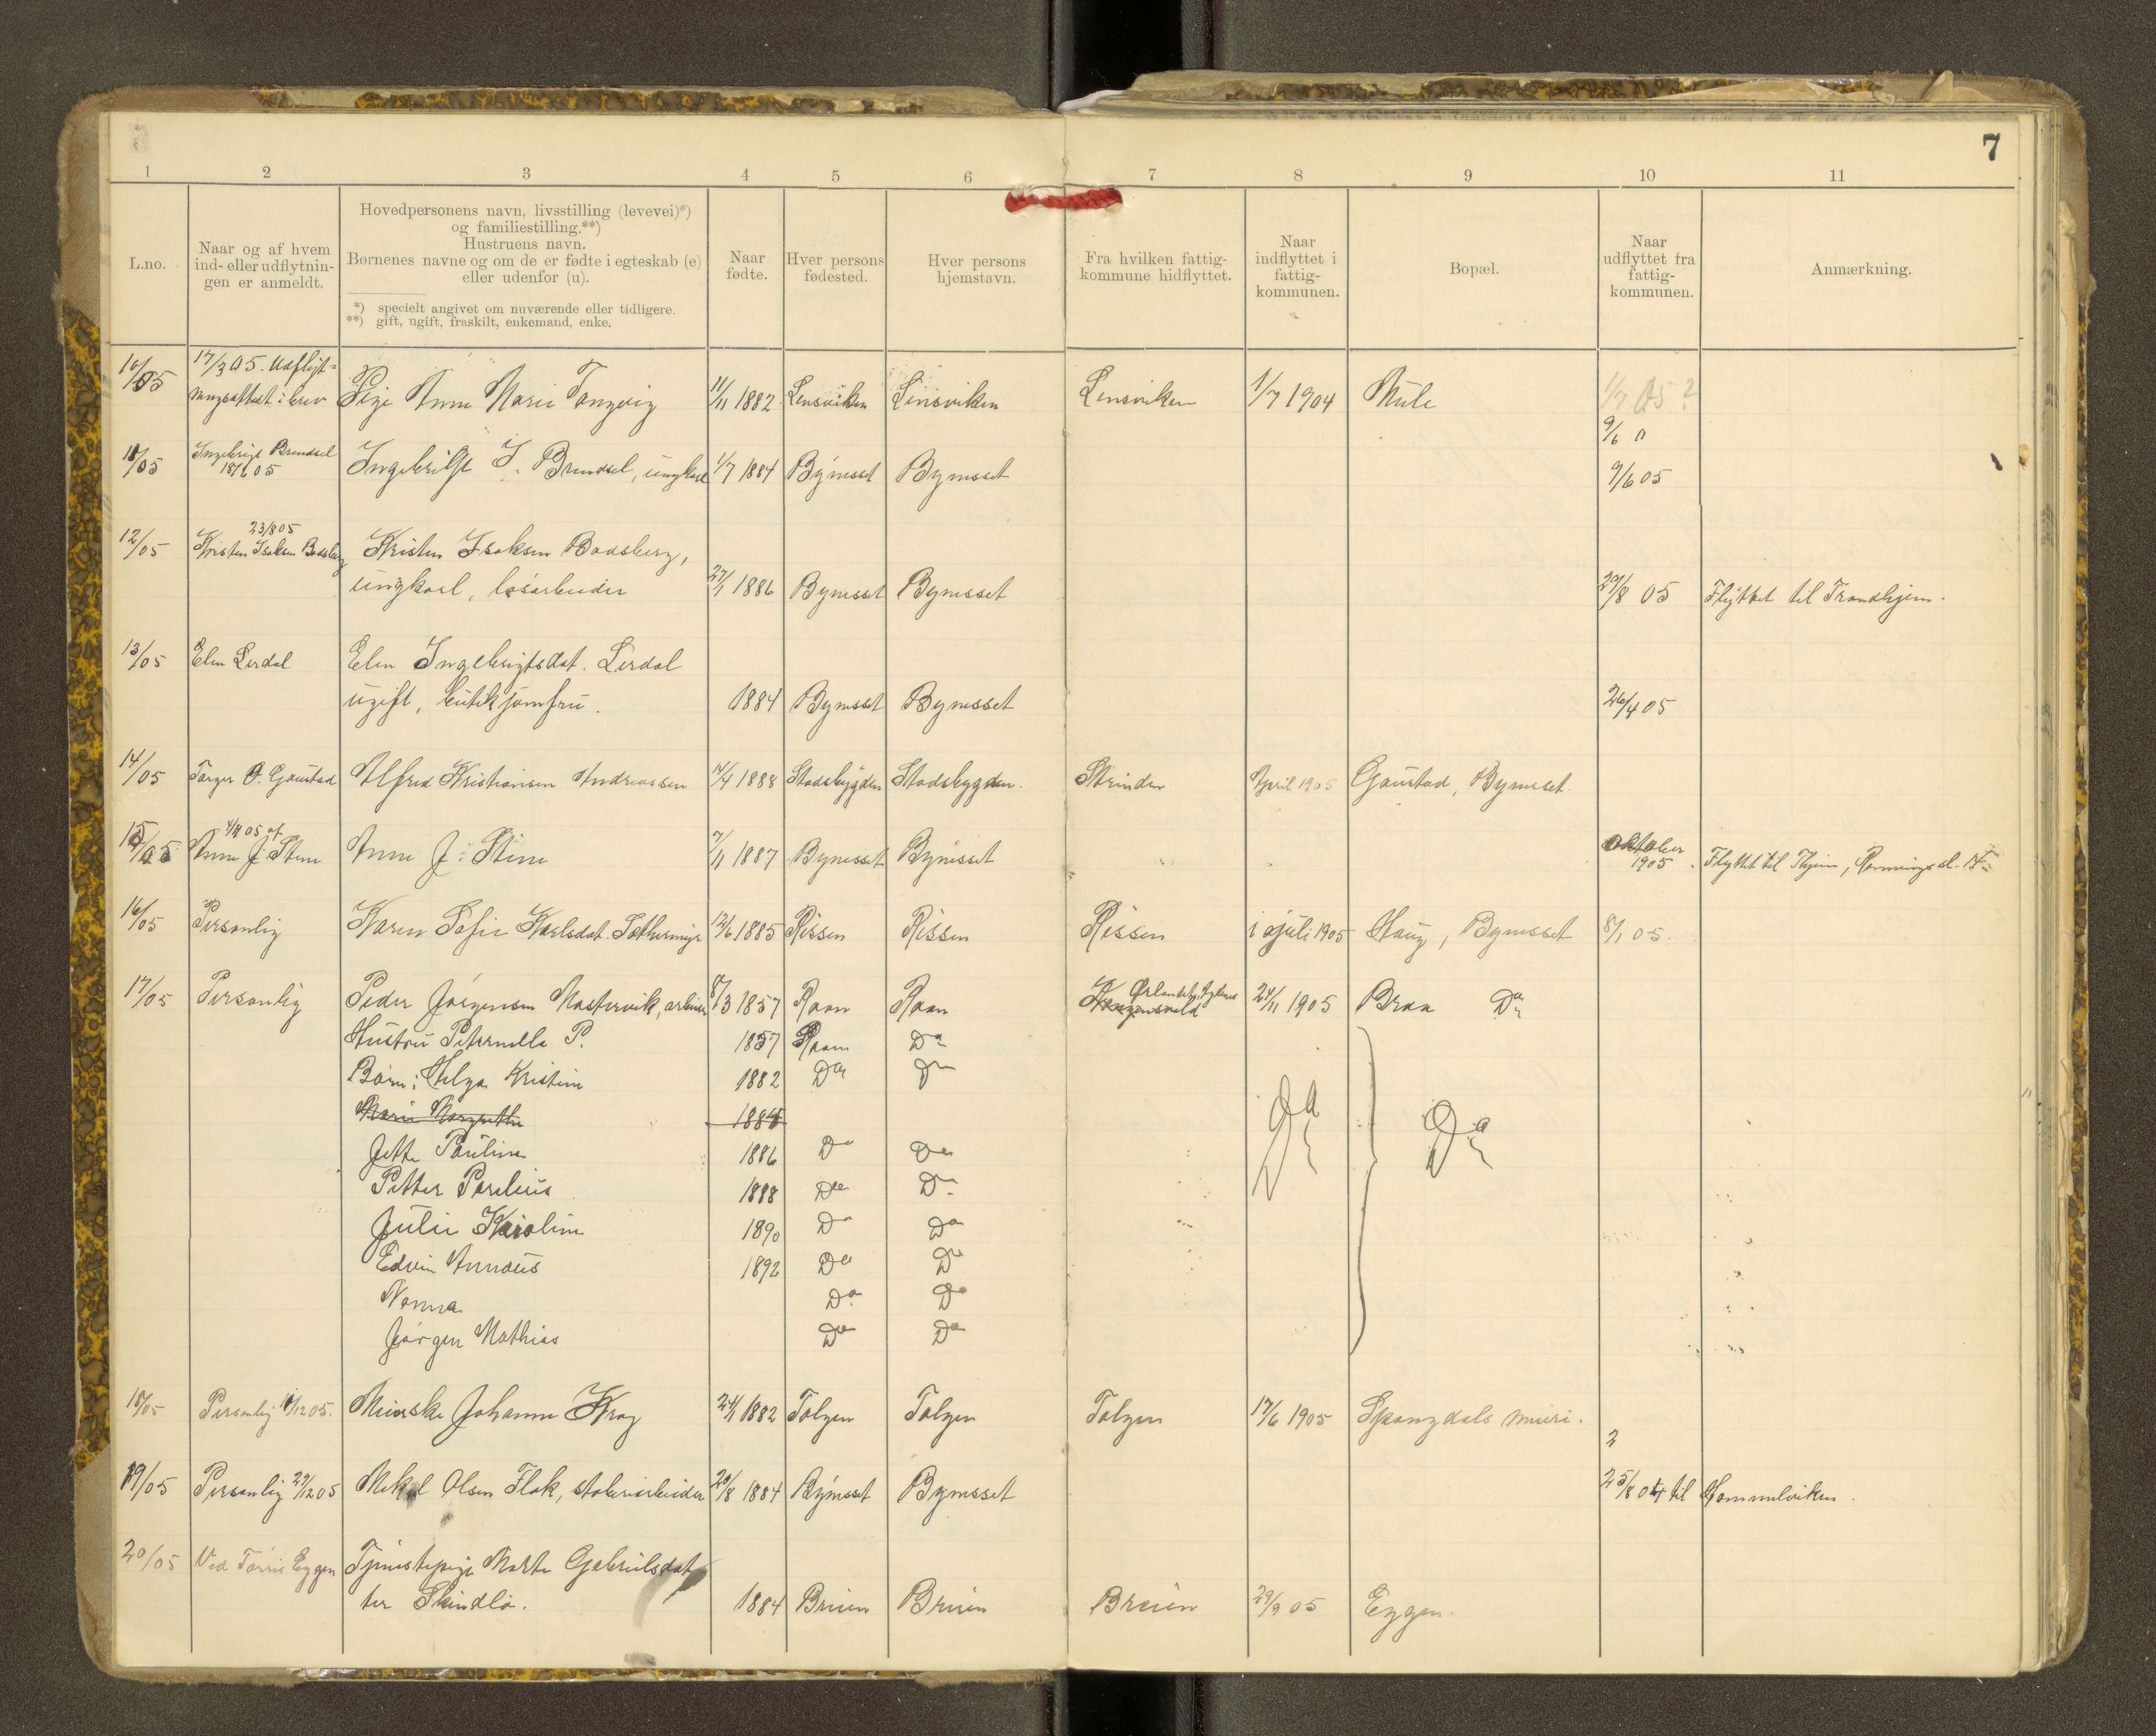 7
1 2 3 4 5 6 7 8 9 10 11
L.no.
Naar og af hvem
ind- eller udflytnin-
gen er anmeldt.
Hovedpersonens navn, livsstilling (levevei)*)
og familiestilling.**)
Hustruens navn.
Børnenes navne og om de er fødte i egteskab (e)
eller udenfor (u).
*) specielt angivet om nuværende eller tidligere.
**) gift, ugift, fraskilt, enkemand, enke.
Naar
fødte.
Hver persons
fødested.
Hver persons
hjemstavn.
Fra hvilken fattig-
kommune hidflyttet.
Naar
indflyttet i
fattig-
kommunen.
Bopæl.
Naar
udflyttet fra
fattig-
kommunen.
Anmærkning.
17/3 05. Udflyt-
10/05 ningsattest i brev Pige Anne Marie Tangvig 11/11 1882 Lensviken Lensviken Lensviken 1/7 1904 Mule 1/7 05?
9/6 0
11/05 Ingebrigt Brendsel
18/6 05 Ingebrigt I. Brendsel, ungkarl 1/7 1884 Bynesset Bynesset 9/6 05
23/8 05
12/05 Kristen Isaksen Bodsberg Kristen Isaksen Bodsberg,
ungkarl, løsarbeider 27/1 1886 Bynesset Bynesset 29/8 05 Flyttet til Trondhjem.
13/05 Elen Lerdal Elen Ingebrigtsdat. Lerdal
ugift, butikjomfru. 1884 Bynesset Bynesset 26/4 05
14/05 Tørger O. Gaustad Alfred Kristiansen Andreassen 14/4 1888 Stadsbygden Stadsbygden. Strinden April 1905 Gaustad, Bynesset.
15/05 4/4 05 af
Anne J. Stene Anne J. Stene 7/11 1887 Bynesset Bynesset Oktober
1905. Flyttet til Thjem,
16/05 Personlig Karen Sofie Karlsdat. 12/6 1885 Rissen Rissen Rissen i juli 1905 Haug, Bynesset 8/1 05.
17/05 Personlig Peder Jørgensen Mastervik, arbeider 8/3 1857 Roan Roan Ørlandet 24/11 1905 Braa Do
Hustru Peternelle P. 1857 Roan Do
Børn: Helga Kristine 1882 Do Do
Marie Margrethe 1884 Do Do
Jette Pauline 1886 Do Do
Petter Parelius 1888 Do Do
Julie Karoline 1890 Do Do
Edvin Annæus 1892 Do Do
Nanna Do Do
Jørgen Mathias Do Do
18/05 Personlig 11/12 05. Meierske Johanne Krog 24/1 1882 Tolgen Tolgen Tolgen 17/6 1905 Spongdals meieri.
2
19/05 Personlig 29/12 05 Mekal Olsen Flak, støberiarbeider 20/8 1884 Bynesset Bynesset 25/8 04 til Hommelviken.
20/05 Ved Tørris Eggen Tjenestepige Marta Gabrielsdat-
ter Skindlo. 1884 Breien Breien Breien 29/9 05 Eggen.